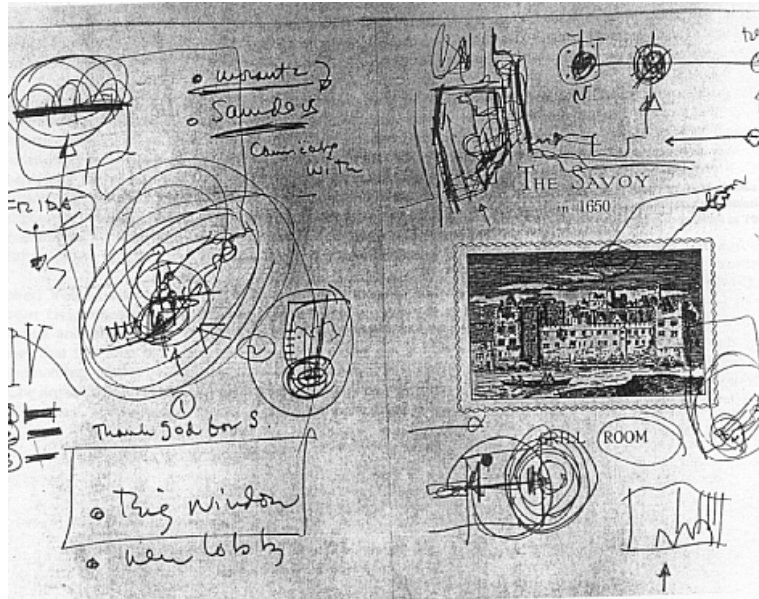 Saunders
with
FRIDA
②
①
Thank God for S.
This window
New lobby
THE SAVOY
in 1650
N
GRILL ROOM